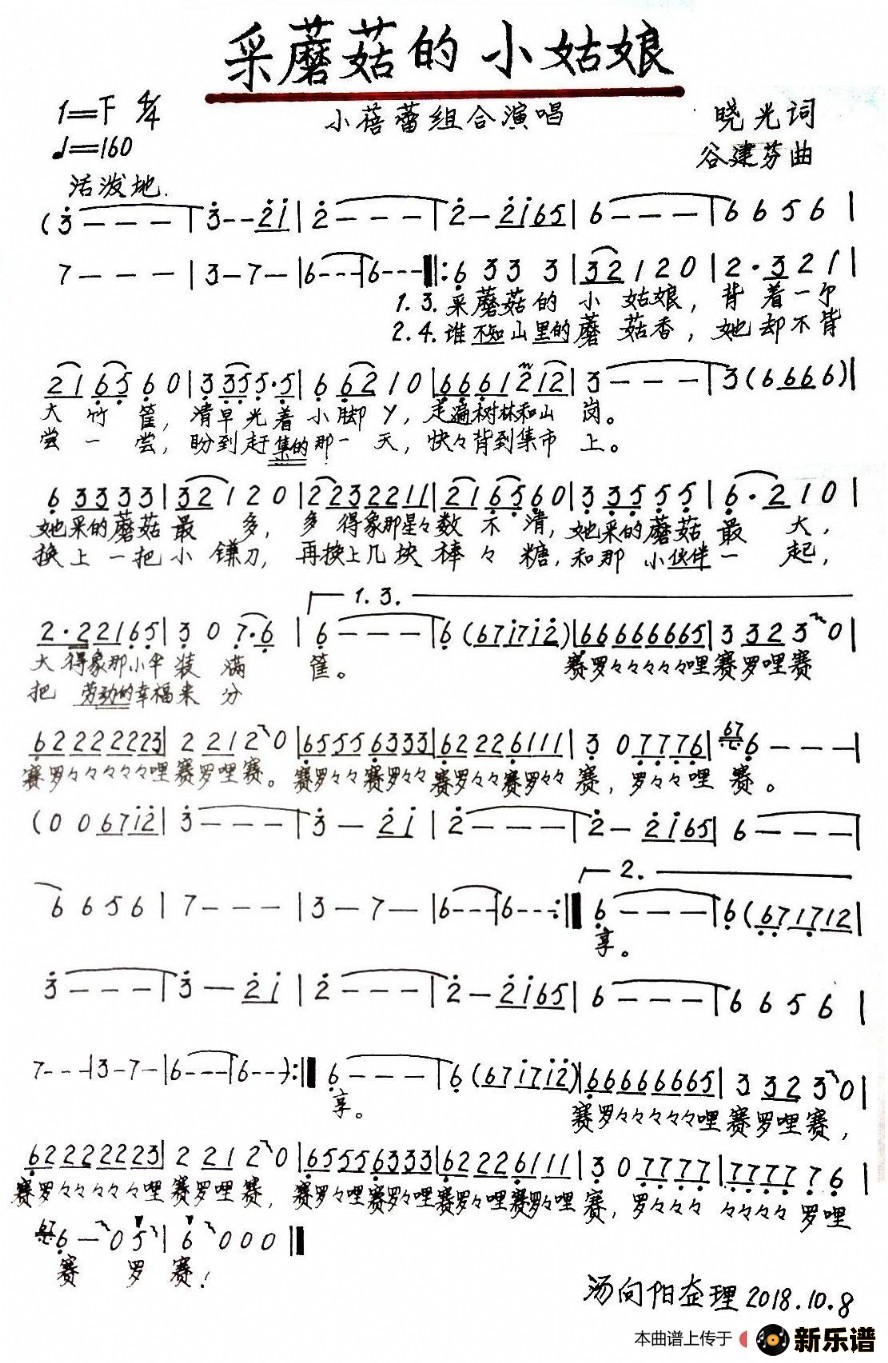 采蘑菇的小姑娘
1=F 4/4
小蓓蕾组合演唱
晓光词
♩=160
谷建芬曲
活泼地.
(3--- | 3--21 | 2--- | 2-2165 | 6--- | 6656 |
7--- | 3-7- | 6--- | 6--- ‖: 6 33 3 | 32120 | 2·321 |
1.3.采蘑菇的小姑娘,背着一个
2.4.谁不知山里的蘑菇香,她却不肯
216560 | 3355·5 | 66210 | 6661212 | 3--- | 3(6666) |
大竹筐,清早光着小脚丫,走遍树林和山岗。
尝一尝,盼到赶集的那一天,快々背到集市上。
63333 | 32120 | 22232211 | 216560 | 335555 | 6·210 |
她采的蘑菇最多,多得象那星々数不清,她采的蘑菇最大,
换上一把小镰刀,再换上几块棒々糖,和那小伙伴一起,
2·222165 | 307·6 | 6--- | 6(671712) | 66666665 | 33230 |
1.3.
大得象那小伞装满筐。赛罗々々々々々哩赛罗哩赛
把劳动的幸福来分
62222223 | 22120 | 65556333 | 62226111 | 307776 | 67 6--- |
赛罗々々々々々哩赛罗哩赛。赛罗々々赛罗々々赛罗々々赛罗々々赛,罗々々哩赛。
(006712 | 3--- | 3-21 | 2--- | 2-2165 | 6--- |
2.
6656 | 7--- | 3-7- | 6--- | 6---:‖ 6--- | 6(671712 |
享。
3--- | 3-21 | 2--- | 2-2165 | 6--- | 6656 |
7--- | 3-7- | 6--- | 6---):‖ 6--- | 6(671712) | 66666665 | 33230 |
享。赛罗々々々々々哩赛罗哩赛,
62222223 | 22120 | 65556333 | 62226111 | 307777 | 777776 |
赛罗々々々々々哩赛罗哩赛,赛罗々哩赛罗々哩赛罗々哩赛罗々哩赛,罗々々々々々々々罗哩
67 6-05 | 6000 ‖
赛罗赛!
汤向阳整理2018.10.8
本曲谱上传于 新乐谱